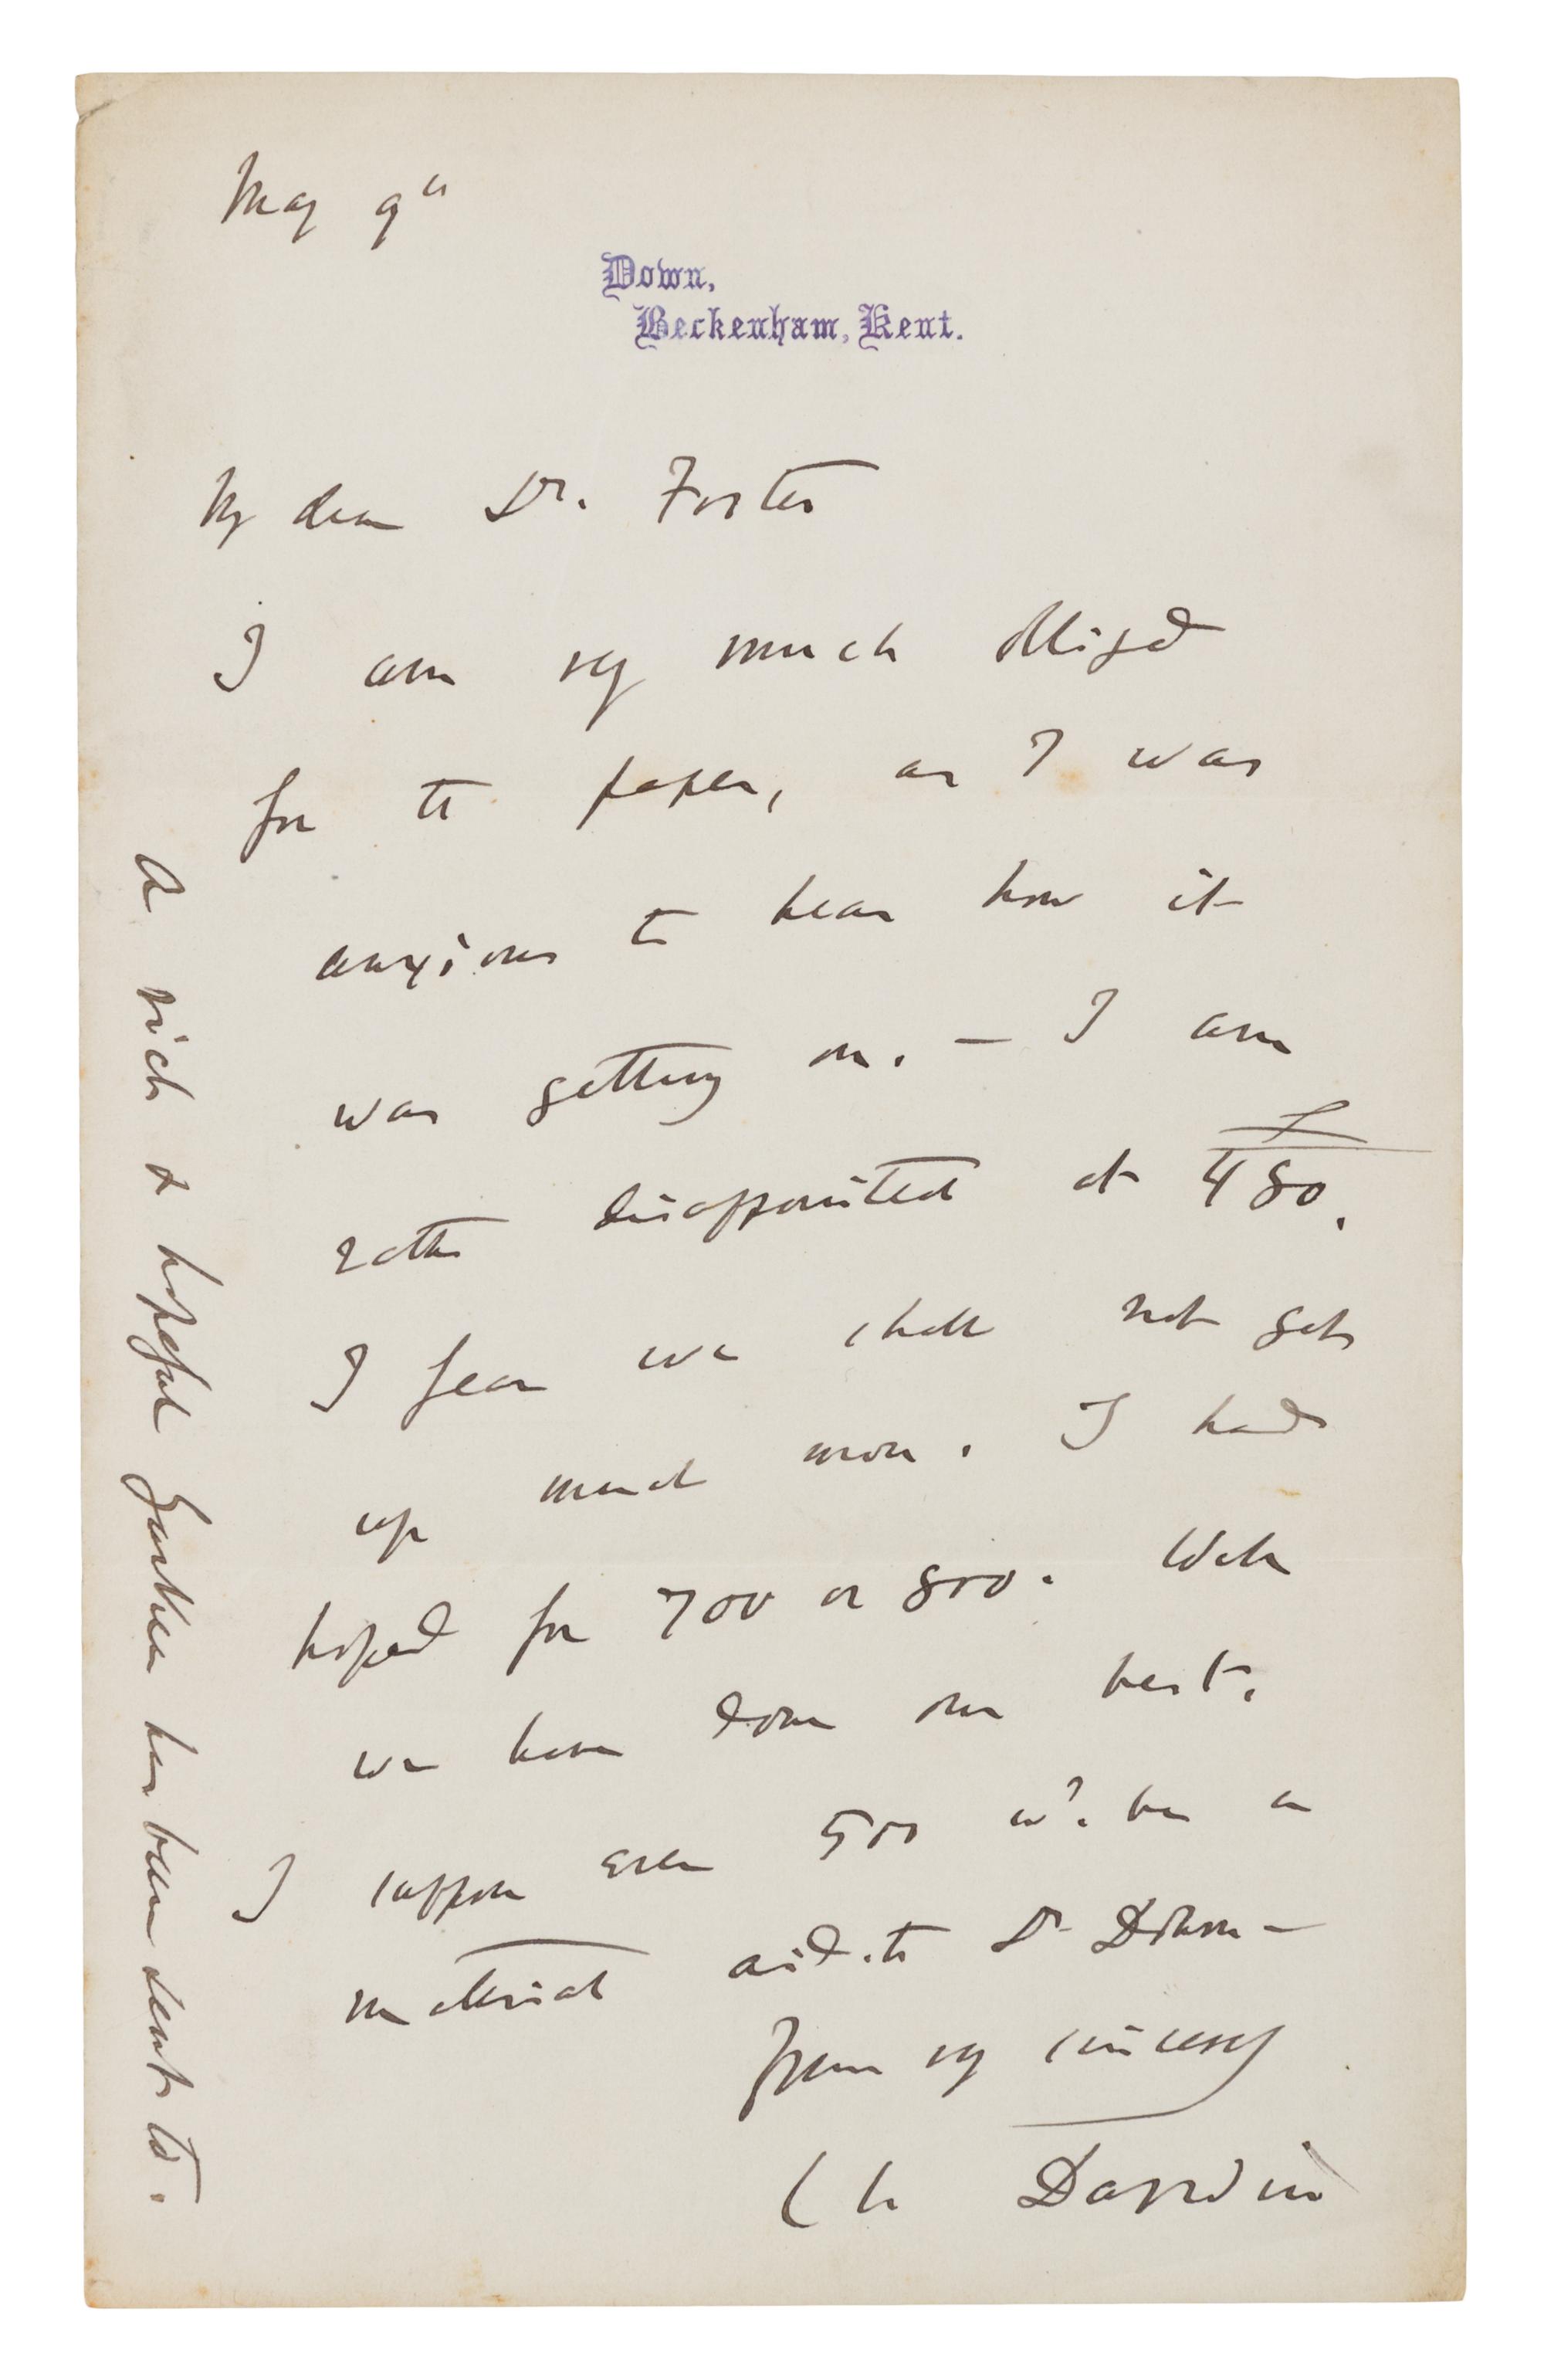 May 9th
Down,
Beckenham, Kent.
My dear Dr. Foster
I am very much obliged
for the paper, as I was
anxious to hear how it
was getting on. — I am
rather disappointed at £480.
I fear we shall not get
up much more. I had
hoped for 700 or 800. Well
we have done our best.
I suppose even 500 wd. be a
material aid to Dr Dohrn —
Yours very sincerely
Ch Darwin
A rich & hopeful Quaker has been sent to.